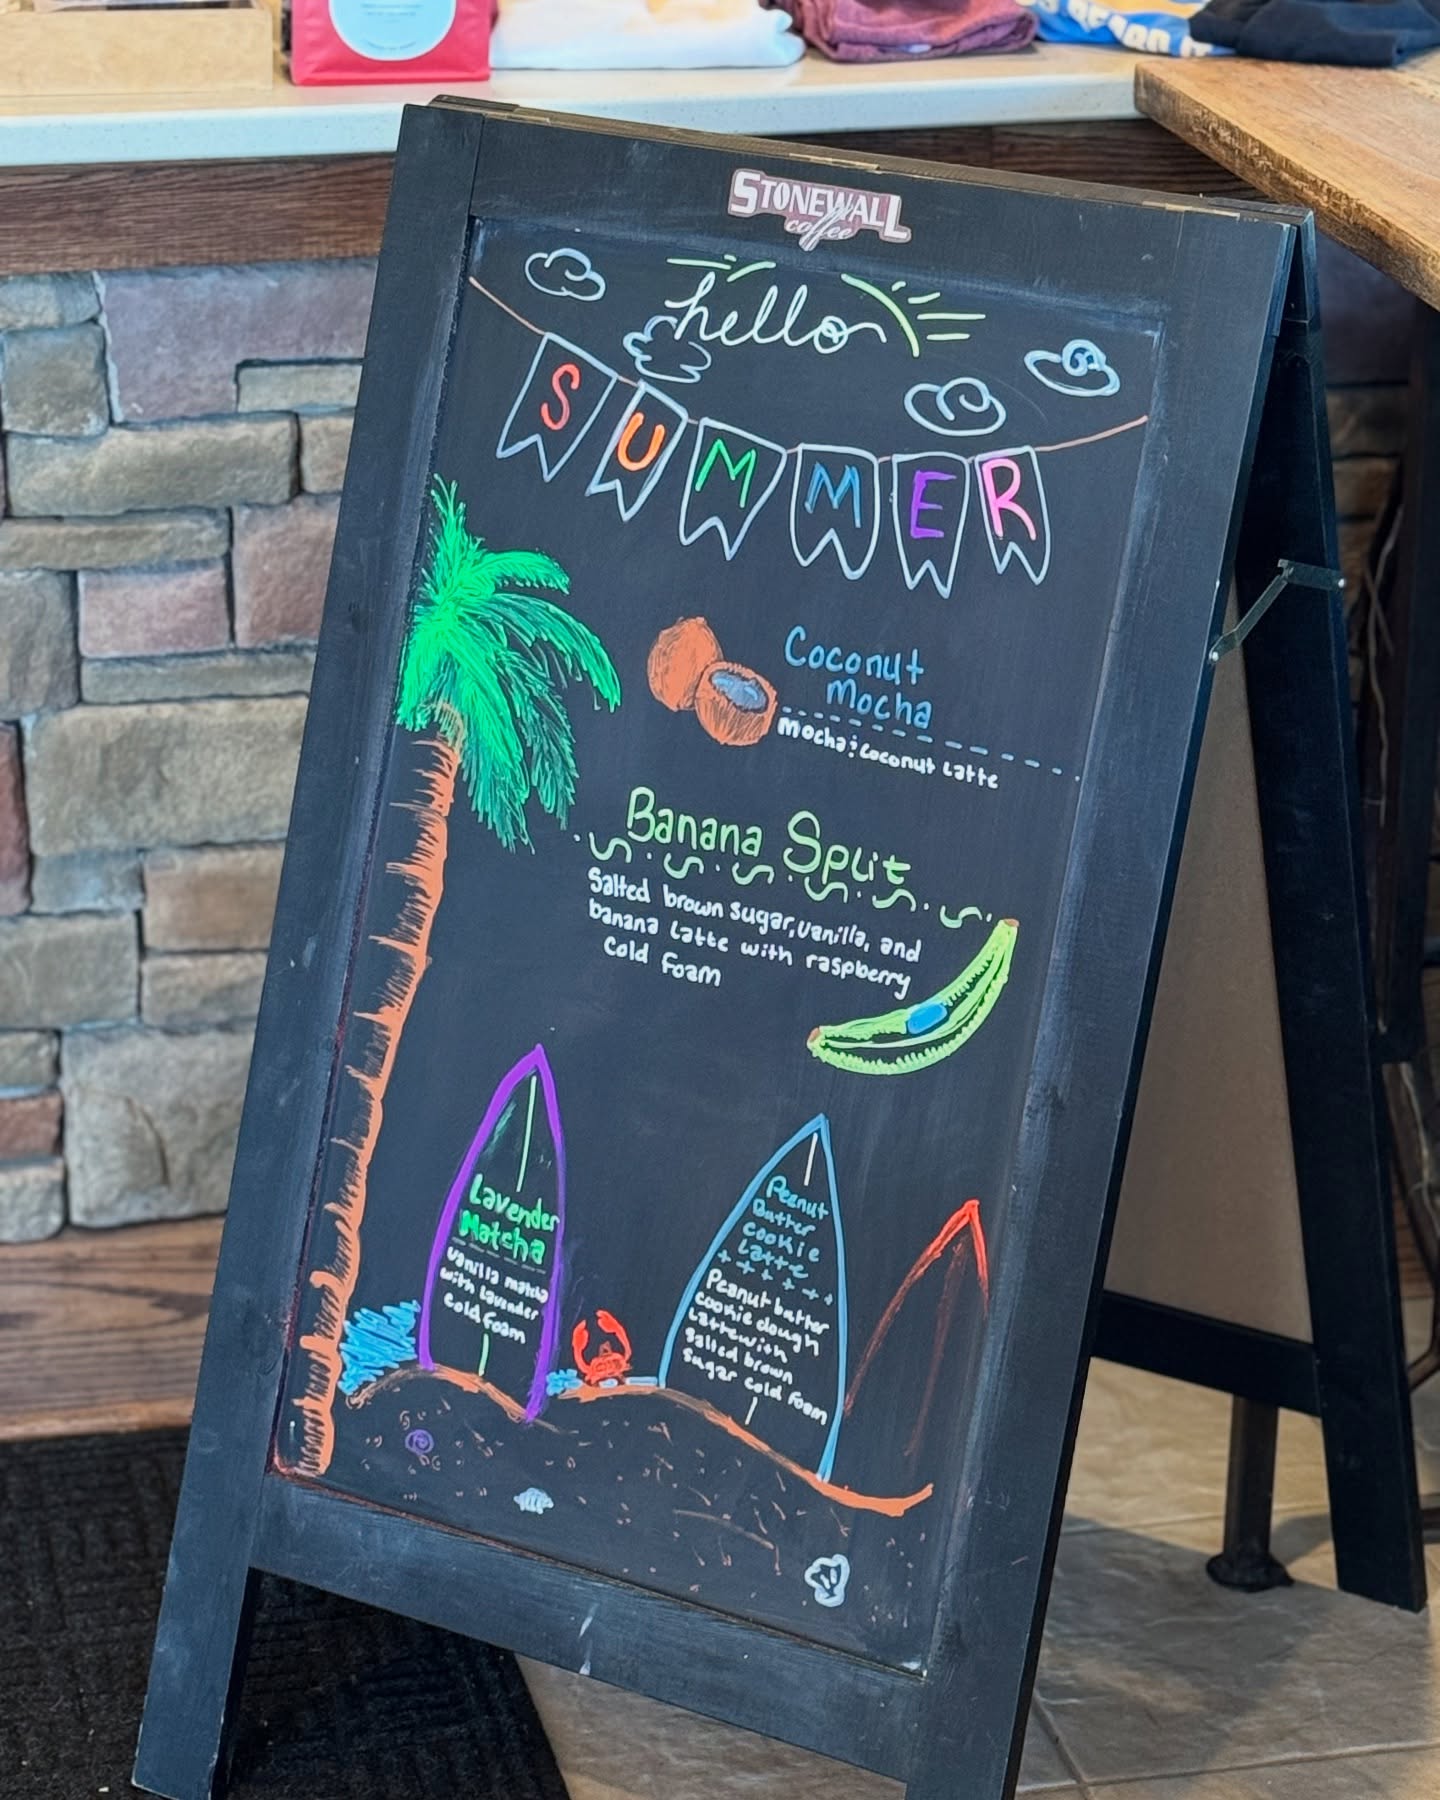 STONEWALL
coffee
hello
SUMMER
Coconut
Mocha
Mocha & Coconut Latte
Banana Split
Salted brown sugar, vanilla, and
banana Latte with raspberry
Cold Foam
Lavender
Matcha
Vanilla matcha
with Lavender
Cold Foam
Peanut
Butter
Cookie
Latte
Peanut butter
cookie dough
Latte with
Salted brown
sugar cold foam